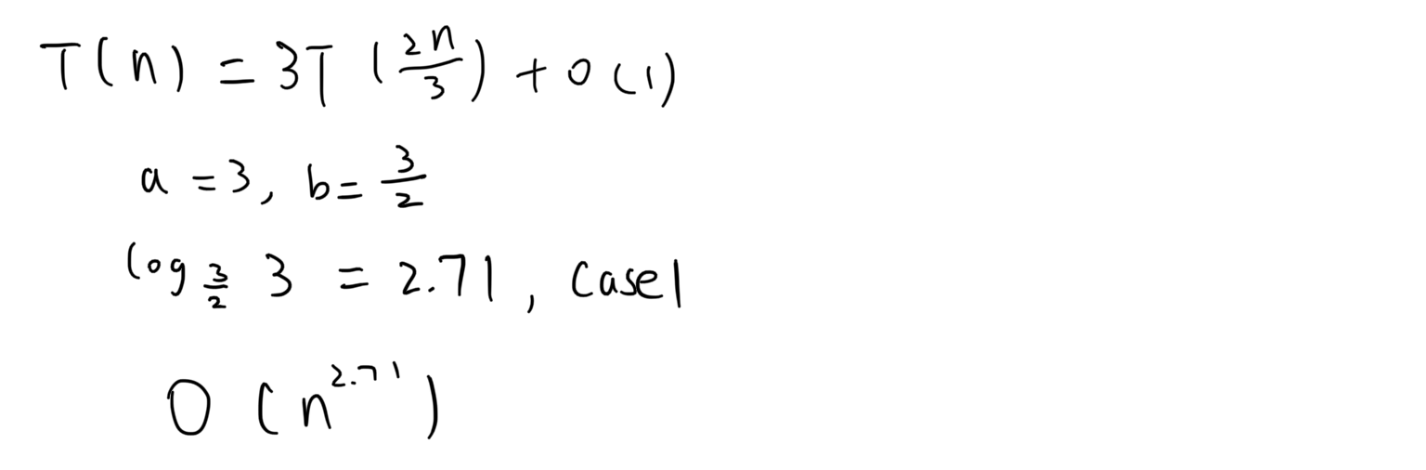 T(n) = 3T(2n/3) + O(1)
a = 3, b = 3/2
log_{3/2} 3 = 2.71, Case1
O(n^{2.71})